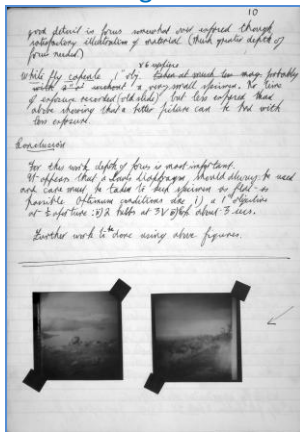 10
good detail in focus somewhat over exposed though
satisfactory illustration of material (Much greater depth of
focus needed)
x 6 eyepiece
White fly capsule, 1" obj. taken at much too mag. probably
with 2" without a very small specimen. No time
of exposure recorded (old slide), but less exposed than
above showing that a better picture can be had with
less exposure.
Conclusion
For this work depth of focus is most important.
It appears that a Davis diaphragm, should always be used
and care must be taken to keep specimen as flat as
possible. Optimum conditions are 1) a 1" objective
at ½ aperture : 2 tubes at 3V about 3 secs.
Further work to be done using above figures.